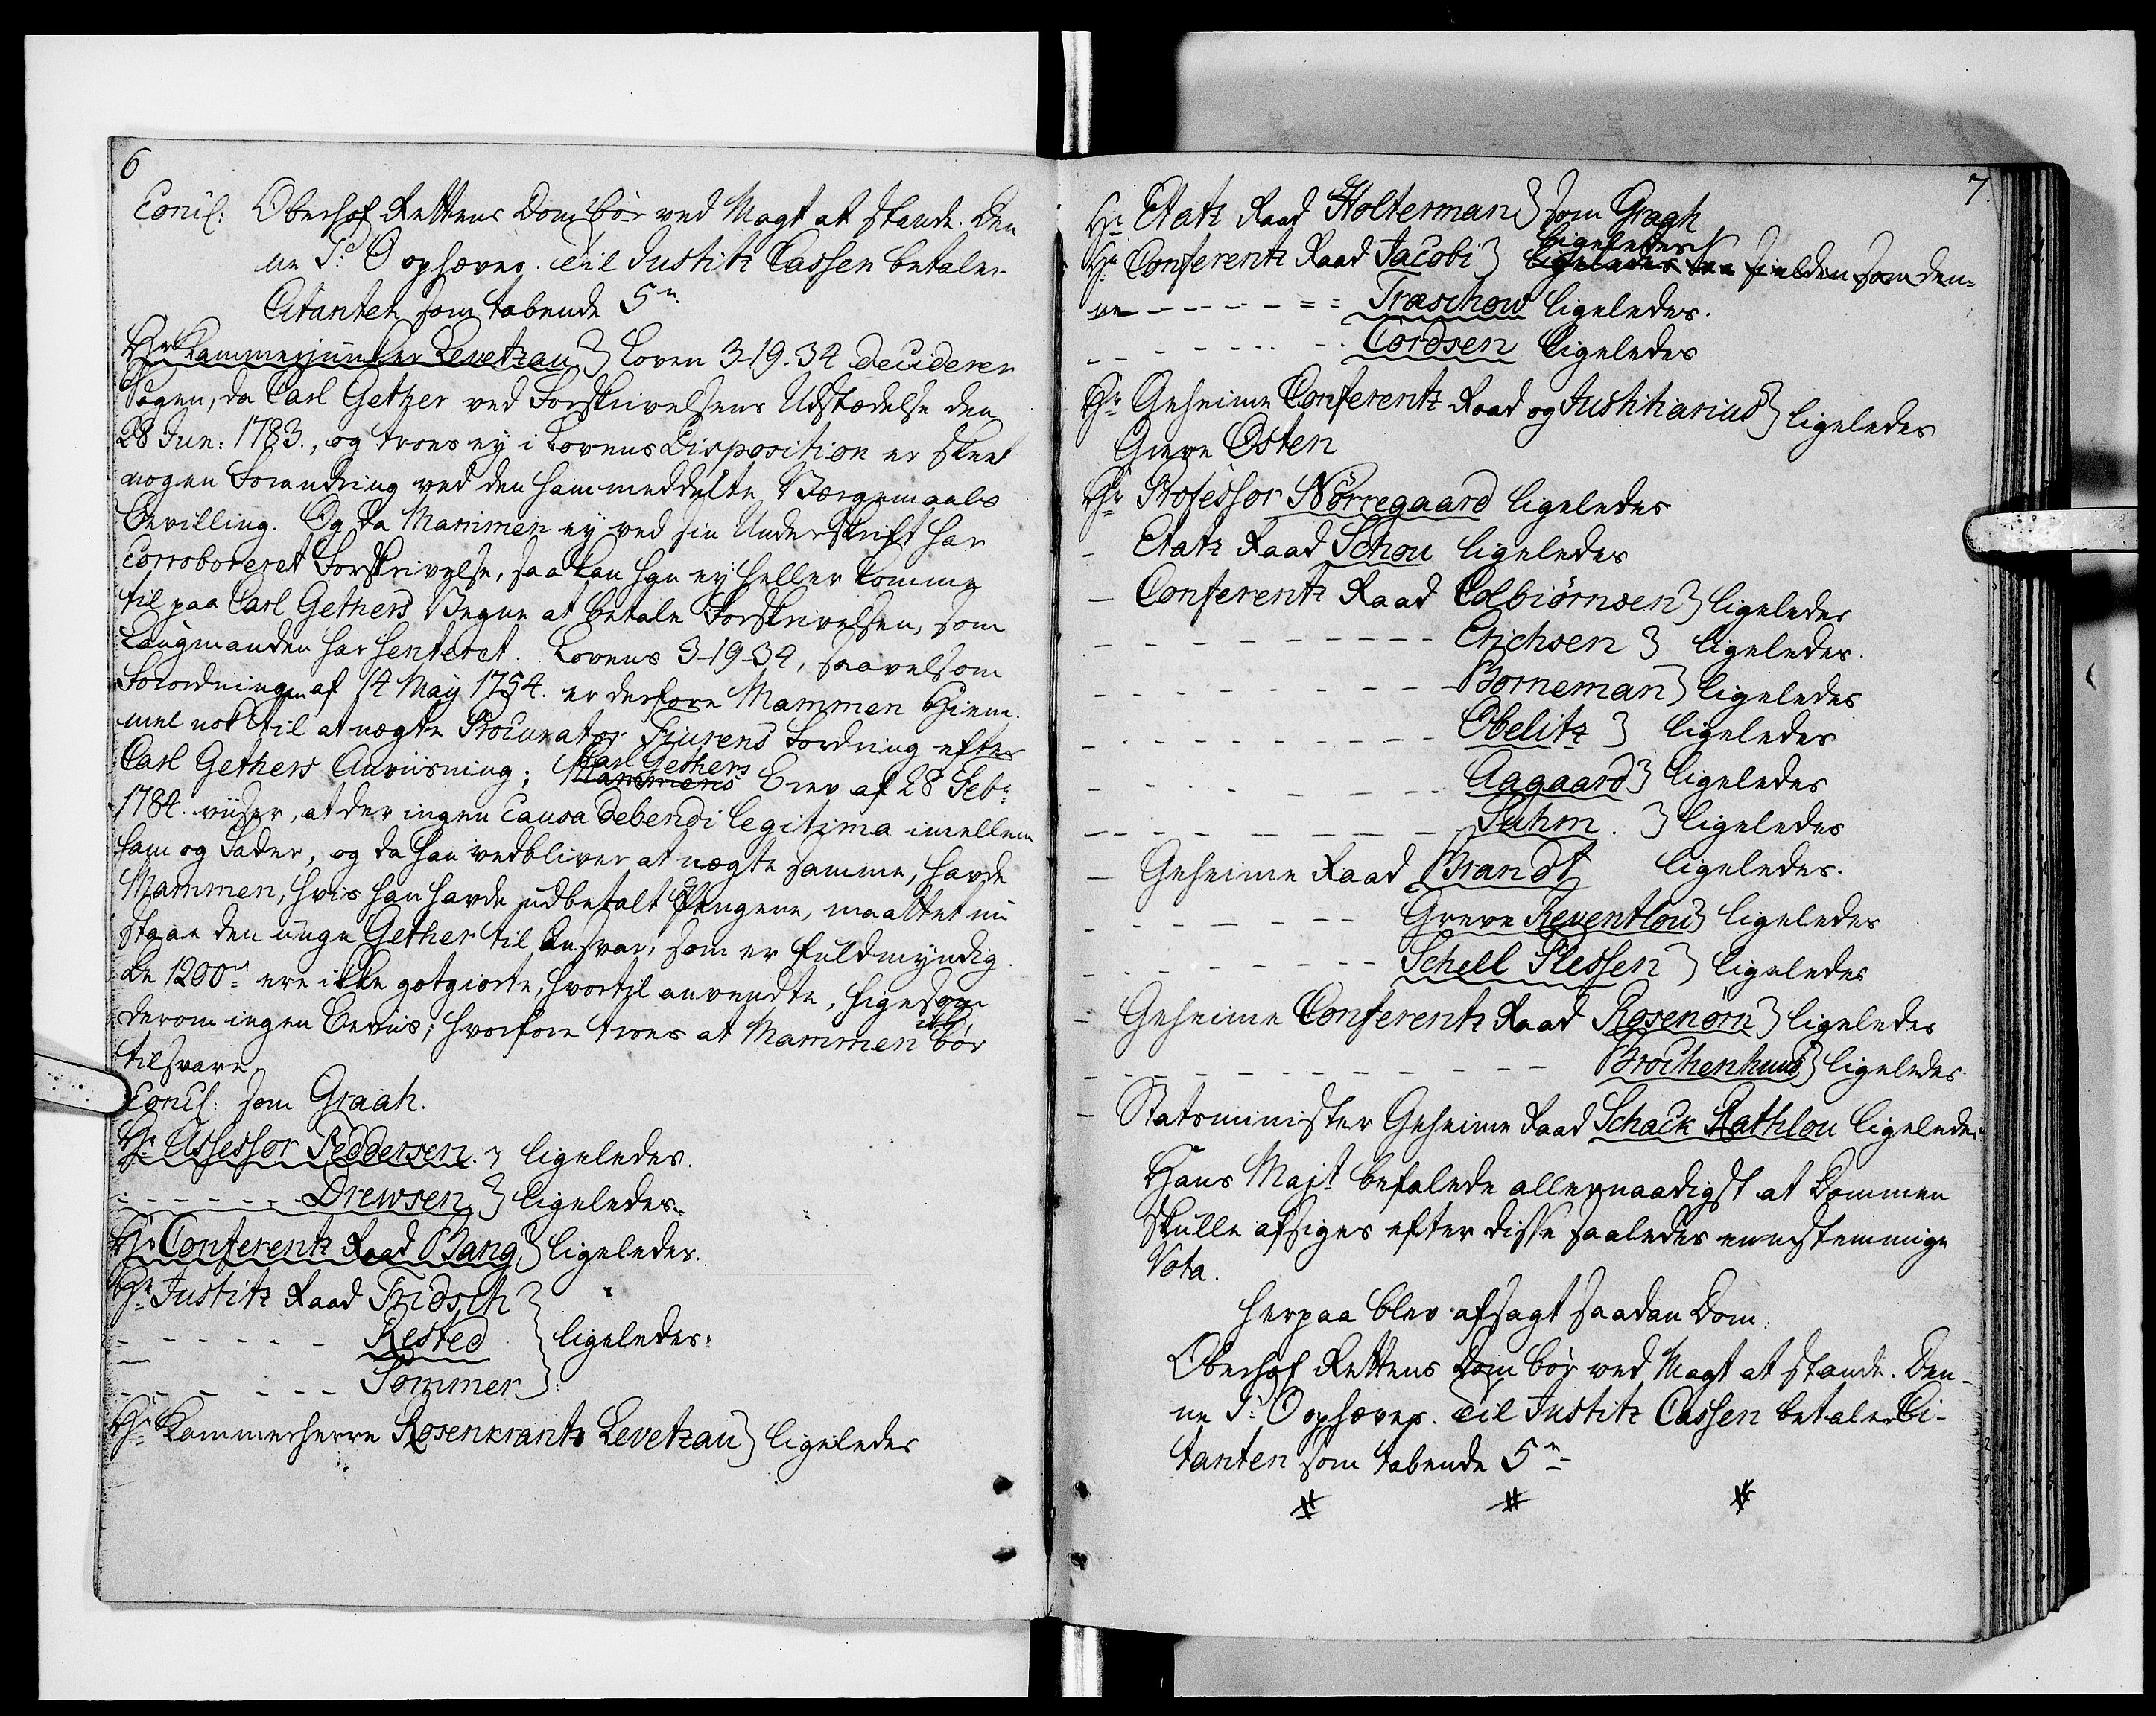 6
Concl: Oberhof Rettens Dom bør ved Magt at stande. Den
ne S: O ophæves. Til Justitz Cassen betaler
Citanten som tabende 5 rd.
Hr Kammerjunker Levetzau } Loven 3-19-34 deciderer
Sagen, da Carl Gether ved Forskrivelsens Udstædelse den
28 Jun: 1783., og troer ey i Lovens Disposition er skeet
nogen Forandring ved den ham meddelte Værgemaals
Bevilling. Og da Mammen ey ved sin Underskrift har
corroboreret Forskrivelse, saa kan han ey heller komme
til paa Carl Gethers Vegne at betale Forskrivelsen, som
Laugmanden har senteret. Lovens 3-19-34, saavelsom
Forordningen af 14 May 1754. er derfore Mammen Hiem-
mel nok til at nægte Procurator Fiurens Fordring efter
Carl Gethers Anviisning; Carl Gethers Mammens Brev af 28 Febr
1784. viiser, at der ingen causa debendi legitima imellem
ham og Fader, og da han vedbliver at nægte samme, havde
Mammen, hvis han havde udbetalt Pengene, maattet nu
staae den unge Gether til Ansvar, som er fuldmyndig.
De 1200 rd ere ikke gotgiorte, hvortil anvendte, ligesom
derom ingen Beviis; hvorfore troer at Mammen ikke bør
tilsvare.
Concl: som Graah.
Hr Assessor Feddersen. } ligeledes.
- - - - - - Drewsen } ligeledes.
Hr Conferentz Raad Bang } ligeledes.
Hr Justitz Raad Fridsch
- - - - - - Rested } ligeledes.
- - - - - - Sommer
Hr Kammerherre Rosenkrantz Levetzau } ligeledes
7.
Hr Etatz Raad Holterman } som Graah
Hr Conferentz Raad Jacobi } ligeledes
ligeledes som den-
ne - - - - - = = Træschow ligeledes.
- - - - - - - Cordsen ligeledes
Hr Geheime Conferentz Raad og Justitiarius } ligeledes
Greve Osten
Hr Professor Nørregaard ligeledes
- Etatz Raad Schou ligeledes
- Conferentz Raad Colbiørnsen } ligeledes
- - - - - - - - - Erichsen } ligeledes.
- - - - - - - - - Borneman } ligeledes
- - - - - - - - - Obelitz } ligeledes
- - - - - - - - - Aagaard } ligeledes
- - - - - - - - - Suhm. } ligeledes
- Geheime Raad Brandt ligeledes.
- - - - - - - Greve Reventlou } ligeledes
- - - - - - - Schell Plessen } ligeledes
- Geheime Conferentz Raad Rosenørn } ligeledes
- - - - - - - - - - - Brochenhuus } ligeledes
- Statsminister Geheime Raad Schack Rathlou ligeledes
Hans Majt befalede allernaadigst at Dommen
skulle afsiges efter disse saaledes eenstemmige
Vota.
Herpaa blev afsagt saadan Dom:
Oberhof Rettens Dom bør ved Magt at stande. Den-
ne S: O ophæves. Til Justitz Cassen betaler Ci-
tanten som tabende 5 rd